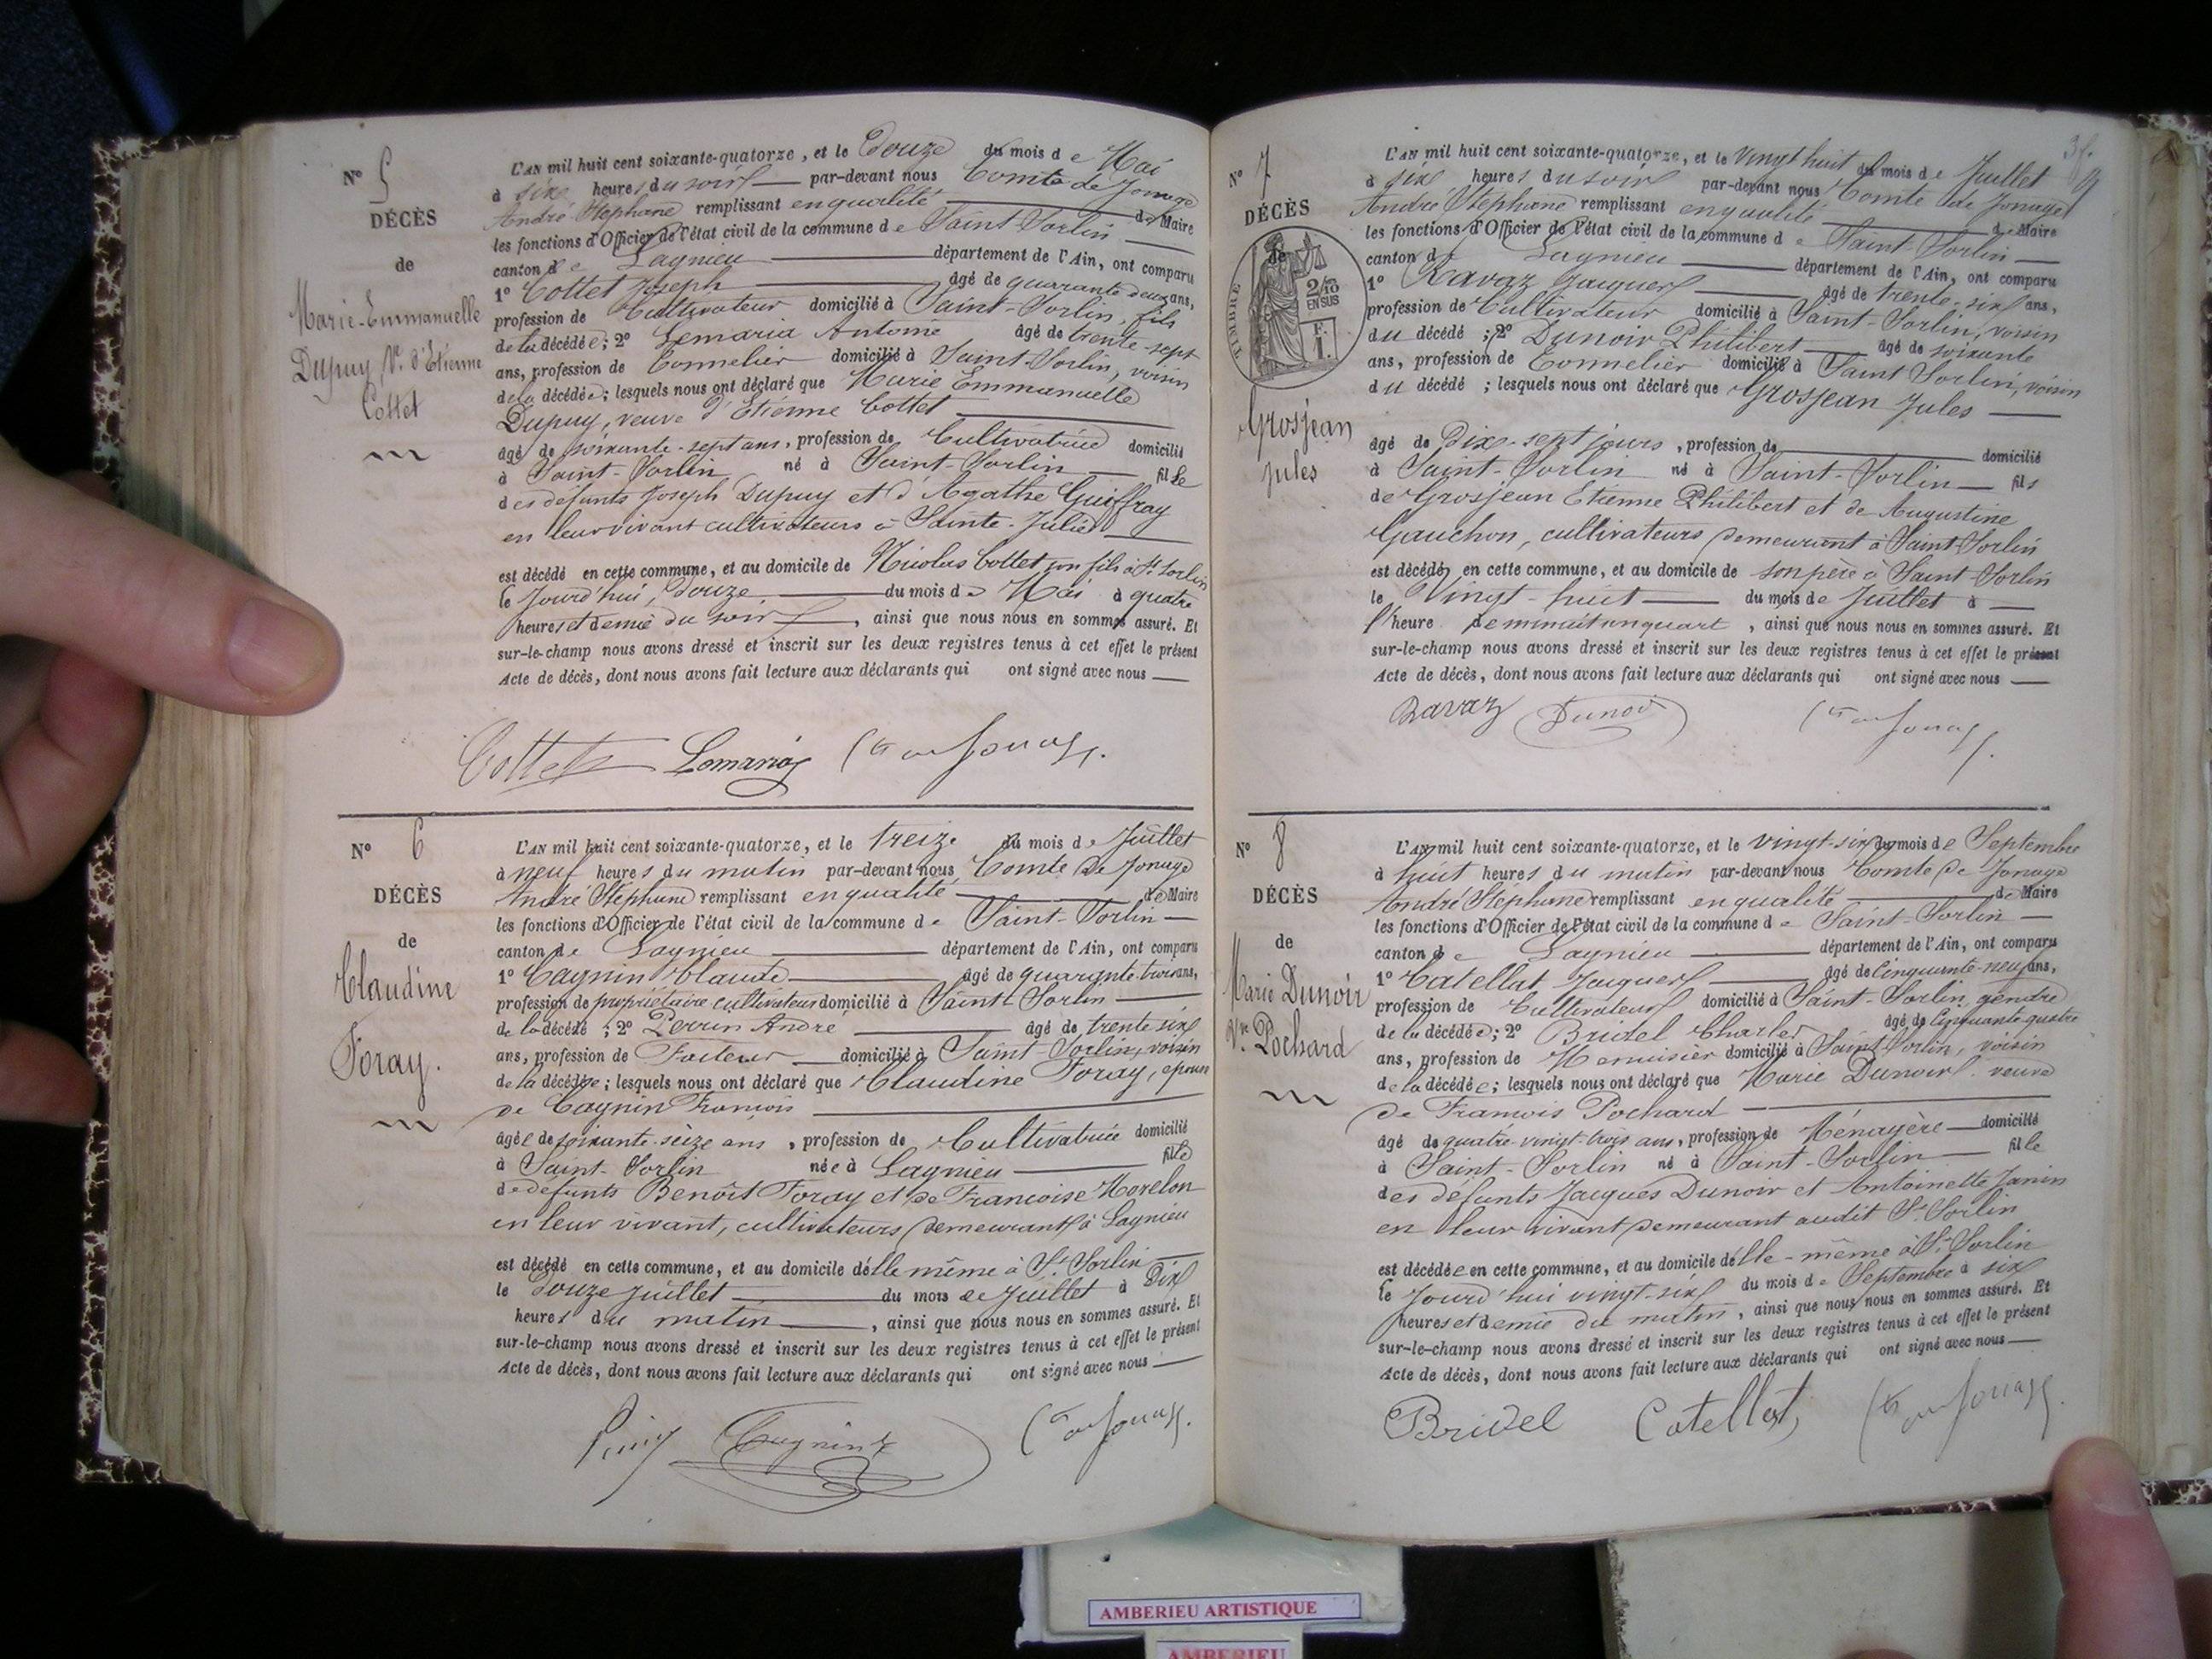 N° 5
DÉCÈS
de
Marie-Emmanuelle
Dupuy, Ve. d'Etienne
Cottet
L'AN mil huit cent soixante-quatorze, et le Douze du mois de Mai
à six heures du soir par-devant nous Comte de Jonage
André Stéphane remplissant en qualité de Maire
les fonctions d'Officier de l'état civil de la commune de Saint-Sorlin
canton de Lagnieu département de l'Ain, ont comparu
1° Cottet Joseph âgé de quarante deux ans,
profession de Cultivateur domicilié à Saint-Sorlin, fils
de la décédée; 2° Lemaria Antoine âgé de trente-sept
ans, profession de Tonnelier domicilié à Saint-Sorlin, voisin
de la décédée; lesquels nous ont déclaré que Marie Emmanuelle
Dupuy, veuve d'Etienne Cottet
âgé de soixante-sept ans, profession de Cultivatrice domicilié
à Saint-Sorlin né à Saint-Sorlin fille
des défunts Joseph Dupuy et d'Agathe Guiffray
en leur vivant cultivateurs à Sainte-Julie
est décédé en cette commune, et au domicile de Nicolas Cottet son fils à St Sorlin
le Jourd'hui, Douze du mois de Mai à quatre
heures et demie du soir, ainsi que nous nous en sommes assuré. Et
sur-le-champ nous avons dressé et inscrit sur les deux registres tenus à cet effet le présent
Acte de décès, dont nous avons fait lecture aux déclarants qui ont signé avec nous
Cottet Lemaria Cte de Jonage.
N° 6
DÉCÈS
de
Claudine
Foray.
L'AN mil huit cent soixante-quatorze, et le treize du mois de Juillet
à neuf heures du matin par-devant nous Comte de Jonage
André Stéphane remplissant en qualité de Maire
les fonctions d'Officier de l'état civil de la commune de Saint-Sorlin
canton de Lagnieu département de l'Ain, ont comparu
1° Cagnin Claude âgé de quarante-trois ans,
profession de propriétaire cultivateur domicilié à Saint-Sorlin
de la décédé; 2° Perrin André âgé de trente six
ans, profession de Facteur domicilié à Saint-Sorlin, voisin
de la décédée; lesquels nous ont déclaré que Claudine Foray, epouse
de Cagnin François
âgée de soixante-seize ans, profession de Cultivatrice domicilié
à Saint-Sorlin née à Lagnieu fille
de défunts Benoît Foray et de Françoise Morelon
en leur vivant, cultivateurs demeurant à Lagnieu
est décédé en cette commune, et au domicile d'elle même à St. Sorlin
le Douze Juillet du mois de Juillet à Dix
heures du matin, ainsi que nous nous en sommes assuré. Et
sur-le-champ nous avons dressé et inscrit sur les deux registres tenus à cet effet le présent
Acte de décès, dont nous avons fait lecture aux déclarants qui ont signé avec nous
Cagnin Cte de Jonage.
N° 7
DÉCÈS
de
TIMBRE
2/10
EN SUS
Grosjean
Jules
L'AN mil huit cent soixante-quatorze, et le Vingt huit du mois de Juillet
à six heures du soir par-devant nous Comte de Jonage
André Stéphane remplissant en qualité de Maire
les fonctions d'Officier de l'état civil de la commune de Saint-Sorlin
canton de Lagnieu département de l'Ain, ont comparu
1° Ravaz Jacques âgé de trente-six ans,
profession de Cultivateur domicilié à Saint-Sorlin, voisin
du décédé; 2° Dunoir Philibert âgé de soixante
ans, profession de Tonnelier domicilié à Saint Sorlin, voisin
du décédé; lesquels nous ont déclaré que Grosjean Jules
âgé de Dix-sept jours, profession de domicilié
à Saint-Sorlin né à Saint-Sorlin fils
de Grosjean Etienne Philibert et de Augustine
Gauchon, cultivateurs demeurant à Saint-Sorlin
est décédé en cette commune, et au domicile de son père à Saint-Sorlin
le Vingt-huit du mois de Juillet à
l'heure de minuit un quart, ainsi que nous nous en sommes assuré. Et
sur-le-champ nous avons dressé et inscrit sur les deux registres tenus à cet effet le présent
Acte de décès, dont nous avons fait lecture aux déclarants qui ont signé avec nous
Ravaz Dunoir Cte de Jonage.
N° 8
DÉCÈS
de
Marie Dunoir
Ve. Pochard
L'AN mil huit cent soixante-quatorze, et le vingt-six du mois de Septembre
à huit heures du matin par-devant nous Comte de Jonage
André Stéphane remplissant en qualité de Maire
les fonctions d'Officier de l'état civil de la commune de Saint-Sorlin
canton de Lagnieu département de l'Ain, ont comparu
1° Catellat Jacques âgé de Cinquante-neuf ans,
profession de Cultivateur domicilié à Saint-Sorlin, gendre
de la décédée; 2° Bridel Charles âgé de Cinquante quatre
ans, profession de Menuisier domicilié à Saint-Sorlin, voisin
de la décédée; lesquels nous ont déclaré que Marie Dunoir veuve
de François Pochard
âgé de quatre-vingt-trois ans, profession de Ménagère domicilié
à Saint-Sorlin né à Saint-Sorlin fille
des défunts Jacques Dunoir et Antoinette Janin
en leur vivant demeurant audit St. Sorlin
est décédée en cette commune, et au domicile d'elle-même à St. Sorlin
le Jourd'hui vingt-six du mois de Septembre à six
heures et demie du matin, ainsi que nous nous en sommes assuré. Et
sur-le-champ nous avons dressé et inscrit sur les deux registres tenus à cet effet le présent
Acte de décès, dont nous avons fait lecture aux déclarants qui ont signé avec nous
Bridel Catellat, Cte de Jonage.
AMBERIEU ARTISTIQUE
AMBERIEU